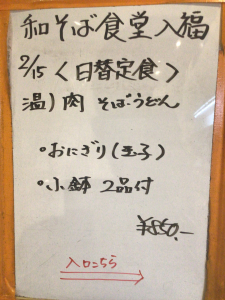 和そば食堂入福
2/15〈日替定食〉
温)肉 そば・うどん
・おにぎり(玉子)
・小鉢 2品付
¥850.-
入口こちら